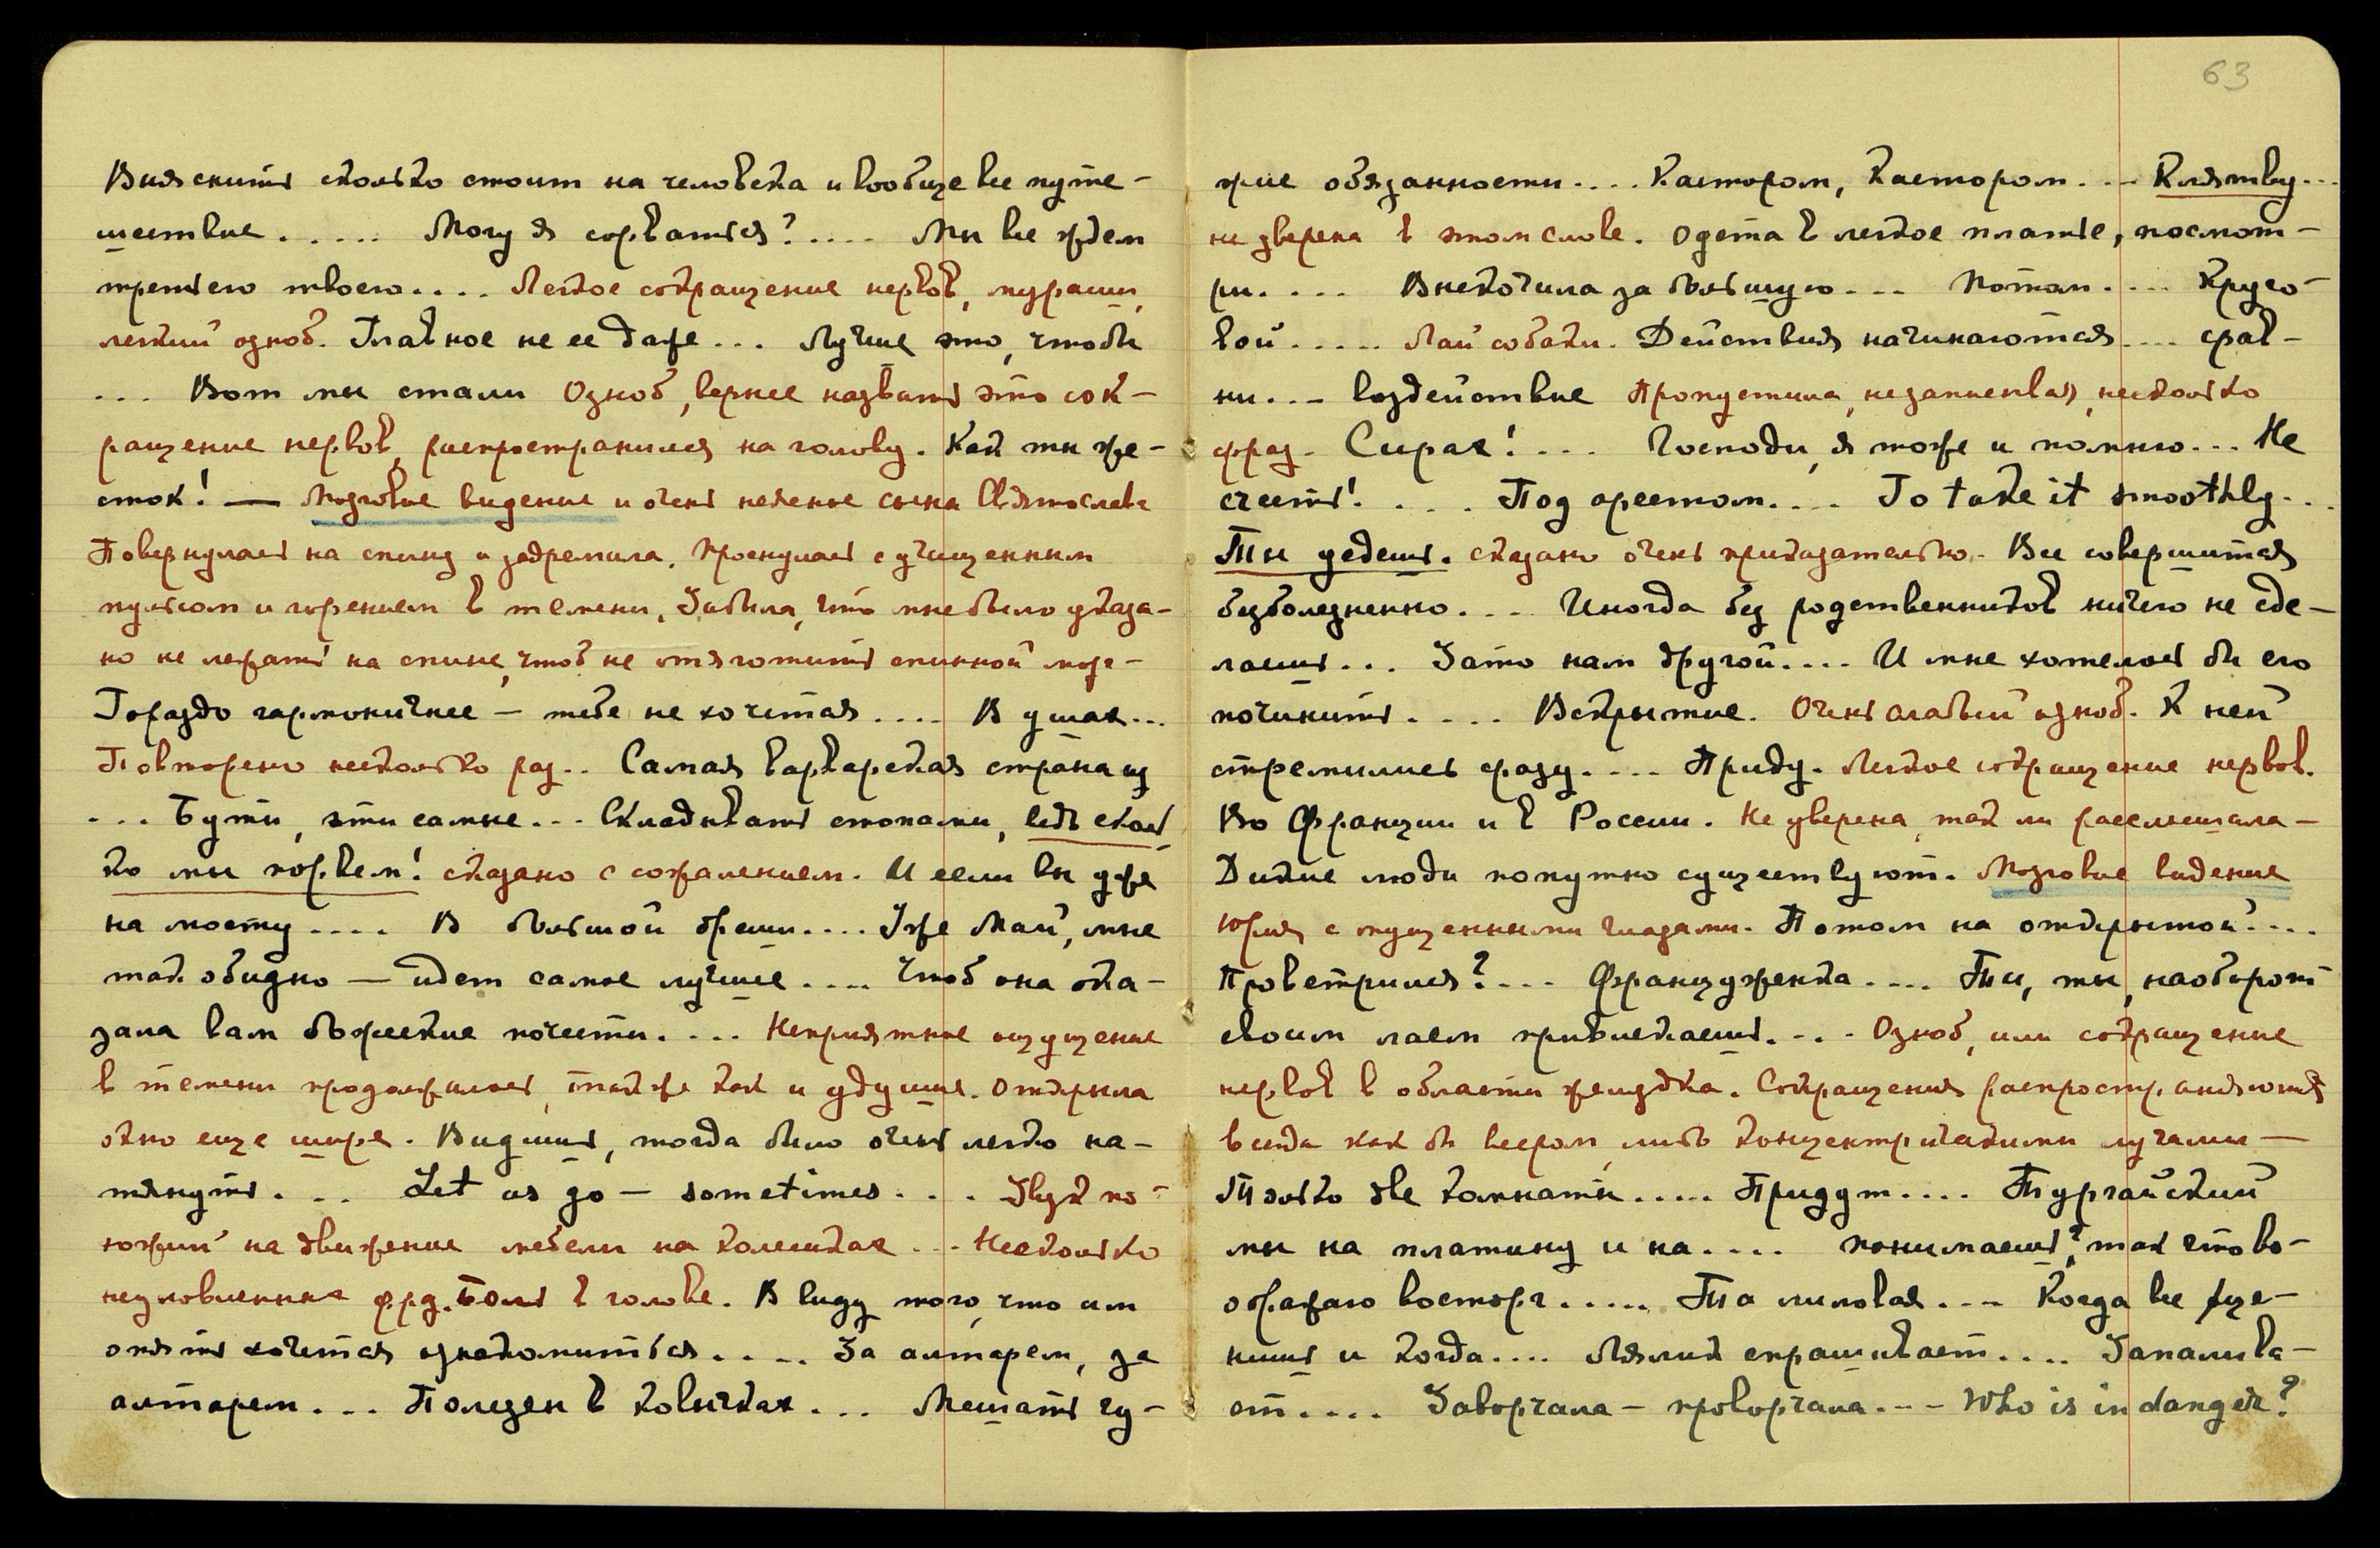 Выяснить сколько стоит на человека и вообще все путе-
шествие ..... Могу я сорваться? .... Мы все ждем
третьего твоего.... Легкое сокращение нервов, мураши,
легкий озноб. Главное не ее даже... Лучше это, чтобы
... Вот мы стали Озноб, вернее назвать это сок-
ращение нервов, распространился на голову. Как ты же-
сток! — Мозговые видение и очень неясное сына Святослава
Повернулась на спину и задремала. Проснулась с учащенным
пульсом и горением в темени. Забыла, что мне было указа-
но не лежать на спине, чтоб не отяготить спинной мозг-
Гораздо гармоничнее — тебе не хочется .... В ушах...
Повторено несколько раз.. Самая варварская страна из
... Бути, эти самые... Складывать стопами, ведь сколь
ко мы порвем! сказано с сожалением. И если вы уже
на мосту .... В большой бреши.... Уже Май, мне
так обидно — идет самое лучшее .... Чтоб она ока-
зала вам божеские почести. ... Неприятное ощущение
в темени продолжилось, также как и удушье. Открыла
окно еще шире. Видишь, тогда было очень легко на-
тянуть. .. Let us go — sometimes. .. Звук по-
хожий на движение мебели на колесиках ... Несколько
неуловленных фраз. Боль в голове. В виду того, что им
опять хочется ознакомиться.... За алтарем, за
алтарем... Полезен в кавычках ... Мешать чу-
63
жие обязанности.... Кастором, Кастором... Клятву...
не уверена в этом слове. Одета в легкое платье, посмот-
ри.... Вскочила за большую... Потом.... Круго-
вой..... Лай собаки. Действия начинаются.... срав-
ни... воздействие Пропустила, не записывая, несколько
фраз. Сирах! ... Господи, я тоже и помню... Не
счесть! ... Под арестом.... To take it smoothly...
Ты уедешь. сказано очень приказательно. Все совершится
безболезненно. .. Иногда без родственников ничего не сде-
лаешь... Зато нам другой.... И мне хотелось бы его
починить.... Вскрытие. Очень слабый озноб. К ней
стремились сразу.... Приду. Легкое сокращение нервов.
Во Франции и в России. Не уверена, так ли расслышала-
Дикие люди попутно существуют. Мозговые видение
Юрия с опущенными глазами. Потом на открытой....
Проветрился?... Француженка .... Ты, ты, наоборот
своим лаем привлекаешь.... Озноб, или сокращение
нервов в области желудка. Сокращения распространяются
всегда как бы веером, либо концентрическими лучами—
Только две комнаты..... Придут.... Тургайский
мы на платину и на.... понимаешь? так что во-
ображаю восторг..... Та лиловая... Когда все
нишь и когда.... Лялик спрашивает.... Запалива-
ет.... Заворчала — проворчала... Who is in danger?